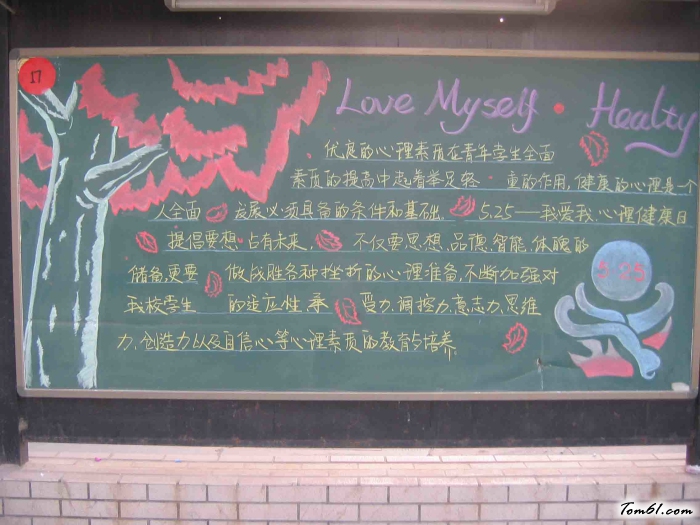 17
Love Myself · Healty
优良的心理素质在青年学生全面
素质的提高中起着举足轻 重的作用,健康的心理是一个
人全面 发展必须具备的条件和基础. 5.25——我爱我,心理健康日
提倡要想占有未来, 不仅要思想、品德、智能、体魄的
储备,更要 做战胜各种挫折的心理准备,不断加强对
我校学生 的适应性、承 受力、调控力、意志力、思维
力、创造力以及自信心等心理素质的教育与培养
5.25
Tom61.com